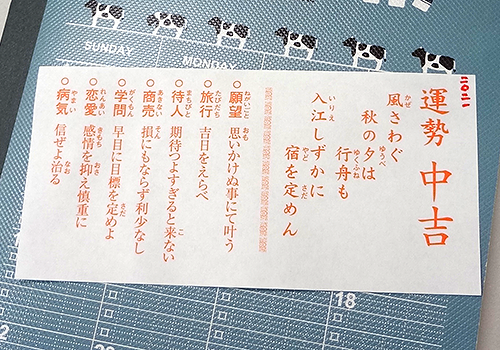 SUNDAY
MONDAY
運勢 中吉
風さわぐ
秋の夕は
行舟も
入江しずかに
宿を定めん
○願望 思いかけぬ事にて叶う
○旅行 吉日をえらべ
○待人 期待つよすぎると来ない
○商売 損にもならず利少なし
○学問 早目に目標を定めよ
○恋愛 感情を抑え慎重に
○病気 信ぜよ治る
18